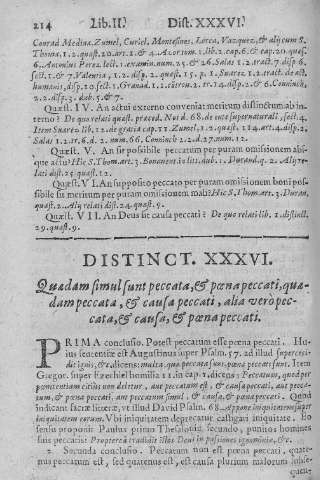 214 Lib.II. Dist.XXXVI.
Conrad Medina. Zumel, Curiel, Montesinos, Lorca, Vazquez, & alij cum S.
Thoma.1.2.quæst.20.art.2.& 4.
6. Antonius Perez sect.1.
sect.1.& 7. Valentia,1.2.disp.2.quæst.15.p.1. Suarez.1.2.tract. de act.
Quæst. IV. An actui externo conveniat meritum distinctum ab in-
terno? De quo relati quæst. præced. Not d.68. de ente supernaturali, sect.4.
Item Suarez lib.12. de gratia cap.11. Zumel,1.2.quæst.114.art.4. disp.2.
Salas 1.2. Coninch 2.2.d.27.num.12.
Quæst. V. An sit possibile peccatum per puram omissionem abs-
que actu? His S. Thom. art.3. Bonavent. Durand.q.2. Alij re-
lati dist.25.quæst.12.
Quæst. VI. An supposito peccato per puram omissionem boni pos-
sibile sit meritum per puram omissionem mali? His S. Thom. art.3. Duran.
quæst.2. Alij relati dist.24.quæst.9.
Quæst. VII. An Deus sit causa peccati? De quo relati lib.1. distinct.
29.quæst.9.
DISTINCT. XXXVI.
Quædam simul sunt peccata, & pœna peccati, quæ-
dam peccata, & causa peccati, alia vero pec-
cata, & causa, & pœna peccati.
PRIMA conclusio. Potest peccatum esse pœna peccati. Hu-
ius sententiæ est Augustinus super Psalm.57. ad illud superceci-
dit ignis, & c. dicens: multa quæ peccata sunt, pœna peccati sunt. Item
Gregor. super Ezechiel homilia 11. in cap.3. dicens: Peccatum, quod per
pœnitentiam citius non deletur, aut peccatum est, & causa peccati, aut pecca-
tum, & pœna peccati, aut peccatum simul, & causa, & pœna peccati. Quod
indicant sacræ litteræ, ut illud David Psalm.68. Appone iniquitatem super
iniquitatem eorum. Vbi iniquitatem deprecatur castigari iniquitate. Eo
sensu proponit Paulus primo Thesalon. secundo, punitos homines
suis peccatis: Propterea tradidit illos Deus in passiones ignominiæ, & c.
2. Secunda conclusio. Peccatum non est pœna peccati, quate-
nus peccatum est, sed quatenus est, est causa plurium malorum
quen-